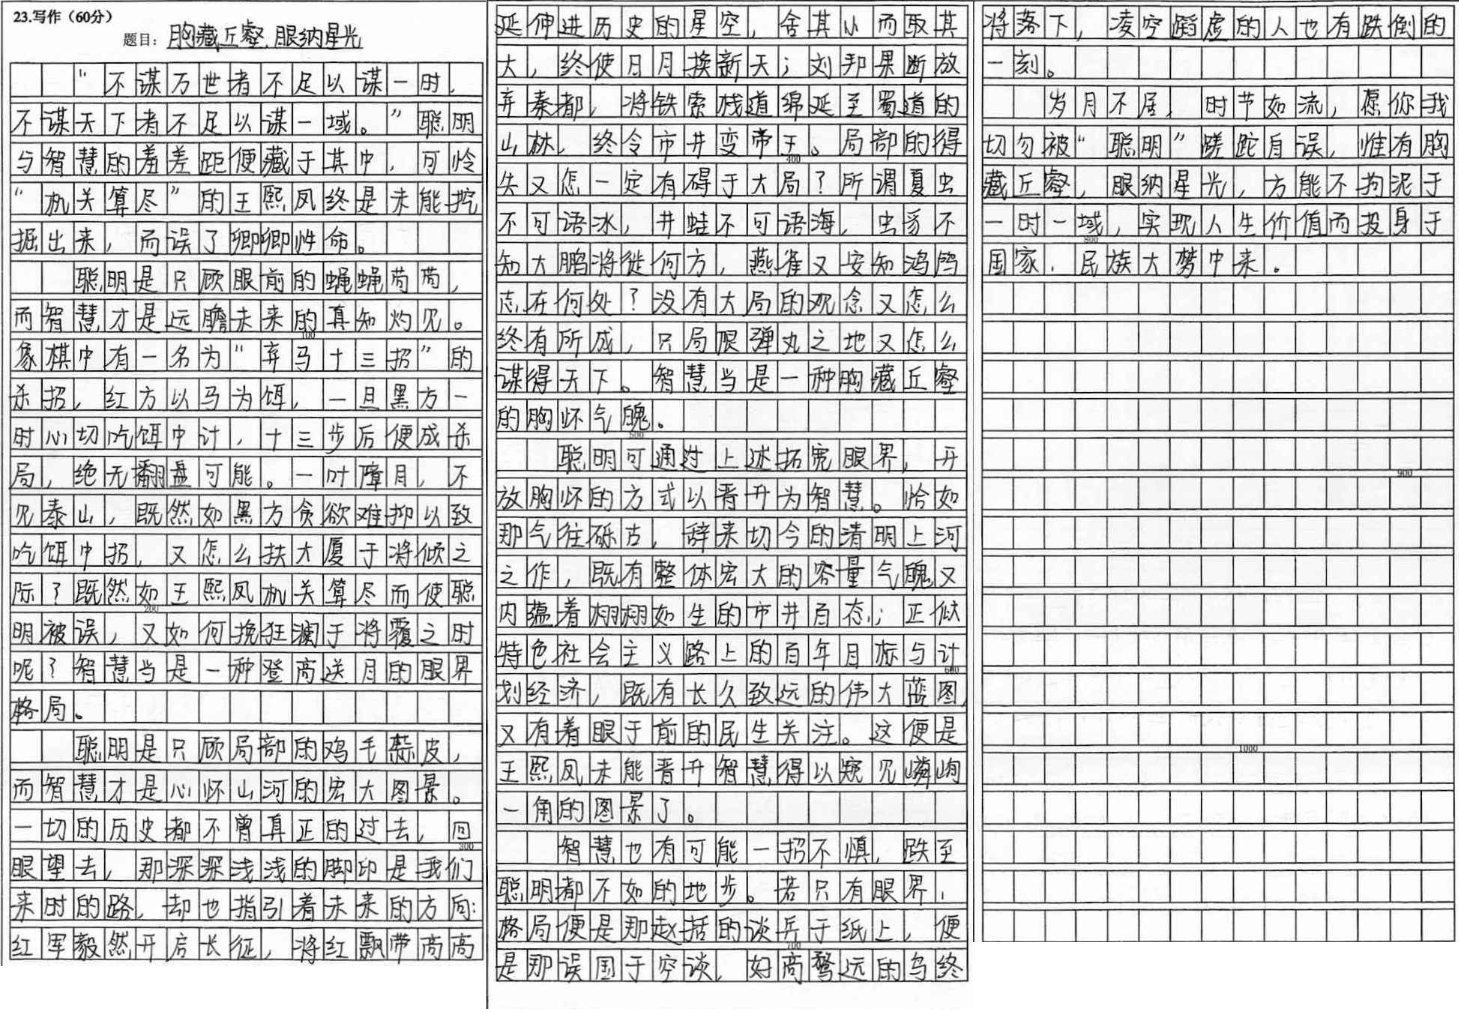 23.写作（60分）
题目：胸藏丘壑，眼纳星光
“不谋万世者不足以谋一时，
不谋天下者不足以谋一域。”聪明
与智慧的差差距便藏于其中，可怜
“机关算尽”的王熙凤终是未能挖
掘出来，而误了卿卿性命。
聪明是只顾眼前的蝇蝇苟苟，
而智慧才是远瞻未来的真知灼见。
100
象棋中有一名为“弃马十三招”的
杀招，红方以马为饵，一旦黑方一
时心切吃饵中计，十三步后便成杀
局，绝无翻盘可能。一叶障目，不
见泰山，既然如黑方贪欲难抑以致
吃饵中招，又怎么扶大厦于将倾之
际？既然如王熙凤机关算尽而使聪
200
明被误，又如何挽狂澜于将覆之时
呢？智慧当是一种登高送月的眼界
格局。
聪明是只顾局部的鸡毛蒜皮，
而智慧才是心怀山河的宏大图景。
一切的历史都不曾真正的过去，回
300
眼望去，那深深浅浅的脚印是我们
来时的路，却也指引着未来的方向：
红军毅然开启长征，将红飘带高高
延伸进历史的星空，舍其小而取其
大，终使日月换新天；刘邦果断放
弃秦都，将铁索栈道绵延至蜀道的
山林，终令市井变帝王。局部的得
400
失又怎一定有碍于大局？所谓夏虫
不可语冰，井蛙不可语海，虫豸不
知大鹏将徙何方，燕雀又安知鸿鹄
志在何处？没有大局的观念又怎么
终有所成，只局限弹丸之地又怎么
谋得天下。智慧当是一种胸藏丘壑
的胸怀气魄。
500
聪明可通过上述拓宽眼界，开
放胸怀的方式以晋升为智慧。恰如
那气往砾古，辞来切今的清明上河
之作，既有整体宏大的容量气魄又
内蕴着栩栩如生的市井百态；正似
特色社会主义路上的百年目标与计
600
划经济，既有长久致远的伟大蓝图，
又有着眼于前的民生关注。这便是
王熙凤未能晋升智慧得以窥见嶙峋
一角的图景了。
智慧也有可能一招不慎，跌至
聪明都不如的地步。若只有眼界，
格局便是那赵括的谈兵于纸上，便
700
是那误国于空谈，好高骛远的鸟终
将落下，凌空蹈虚的人也有跌倒的
一刻。
岁月不居，时节如流，愿你我
切勿被“聪明”蹉跎自误，惟有胸
藏丘壑，眼纳星光，方能不拘泥于
一时一域，实现人生价值而投身于
800
国家，民族大梦中来。
900
1000